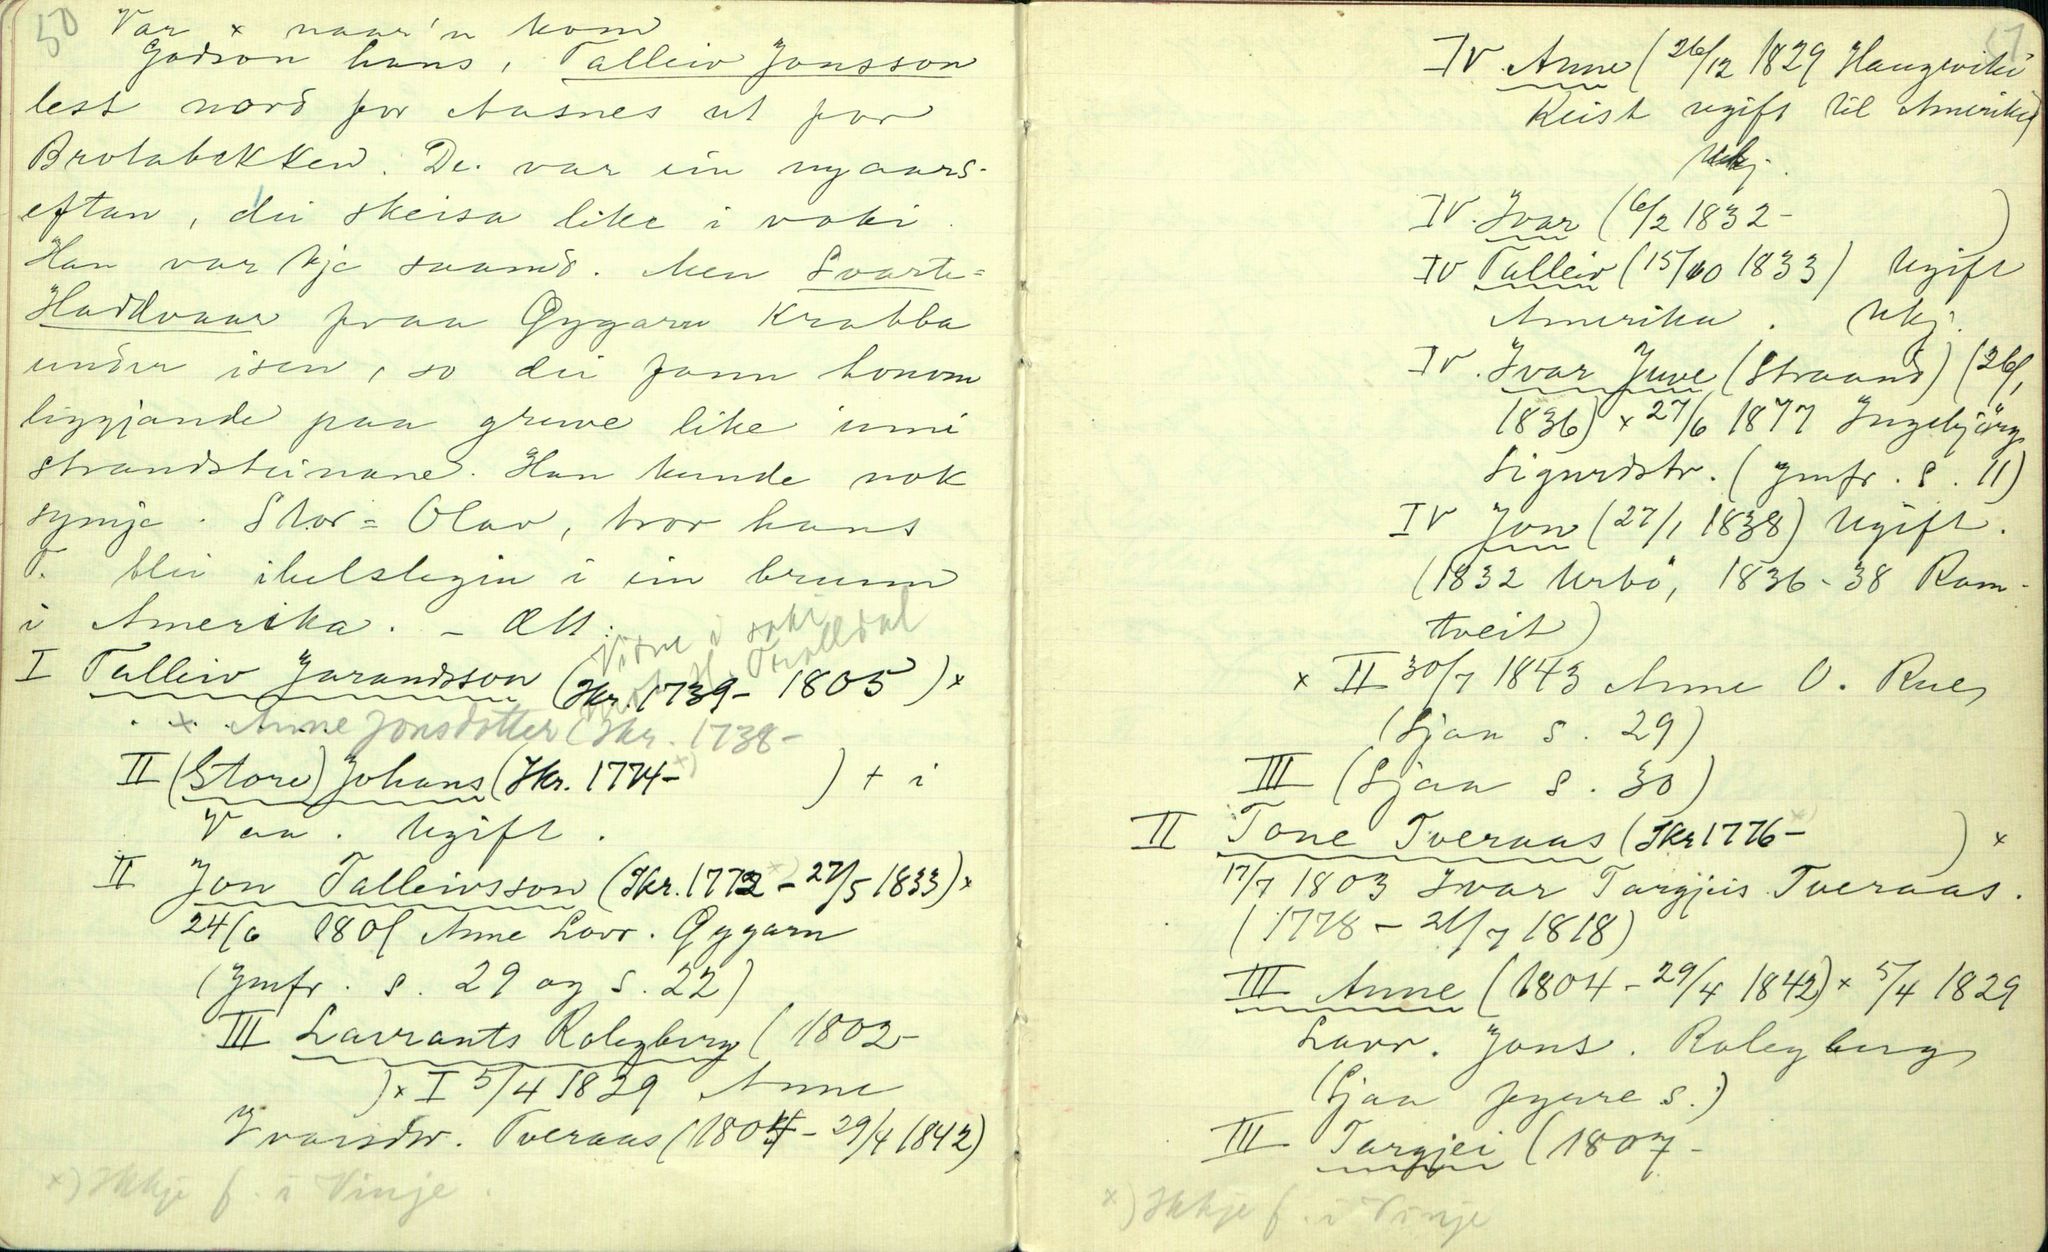 50
Var x naar'n kom
Godson hans, Talleiv Jonsson
lest nord for Aasnes ut for
Brotabekken. De. var ein nyaars-
eftan, dei skeisa like i voki.
Han var kje saamd. Men Svarte-
Haddvaar fraa Gygarn krabba
under isen, so dei fann honom
liggjande paa gruve like inni
strandsteinane. Han kunde nok
symje. Stor-Olav, bror hans
T. blei ihelslegin i ein brunn
i Amerika. - Ætt:
Vitne i saki
Trolldal
I Talleiv Jarandsson (Skr. 1739 - 1805) x
x Anne Jonsdotter (Skr. 1738-
II (Store) Johans (Skr. 1774- x) ) + i
Vaa. Ugift.
II Jon Talleivsson (Skr. 1772 x) - 27/5 1833) x
24/6 1801 Anne Lavr. Gygarn
(Jmfr. s. 29 og s. 22)
III Lavrants Rolegberg (1802-
) x I 5/4 1829 Anne
Ivarsdtr. Tveraas (1804 - 29/4 1842)
x) Ikkje f. i Vinje.
IV. Anne (26/12 1829 Haugeviki
Reist ugift til Amerika)
Ukj.
IV. Ivar (6/2 1832- )
IV Talleiv (15/10 1833) Ugift
Amerika. Ukj.
IV. Ivar Juve (Straand) (26/1
1836) x 27/6 1877 Ingebjörg
Sigurdstr. (Jmfr. s. 11)
IV Jon (27/1 1838) Ugift.
(1832 Urbö, 1836-38 Ram-
tveit)
x II 30/7 1843 Anne O. Rue,
(Sjaa s. 29)
III (Sjaa s. 30)
II Tone Tveraas (Skr 1776- x) ) x
17/7 1803 Ivar Targjeis. Tveraas.
(1778 - 21/7 1818)
III Anne (1804 - 29/4 1842) x 5/4 1829
Lavr. Jons. Rolegberg
(Sjaa fyrre s.)
III Targjei (1807-
x) Ikkje f. i Vinje